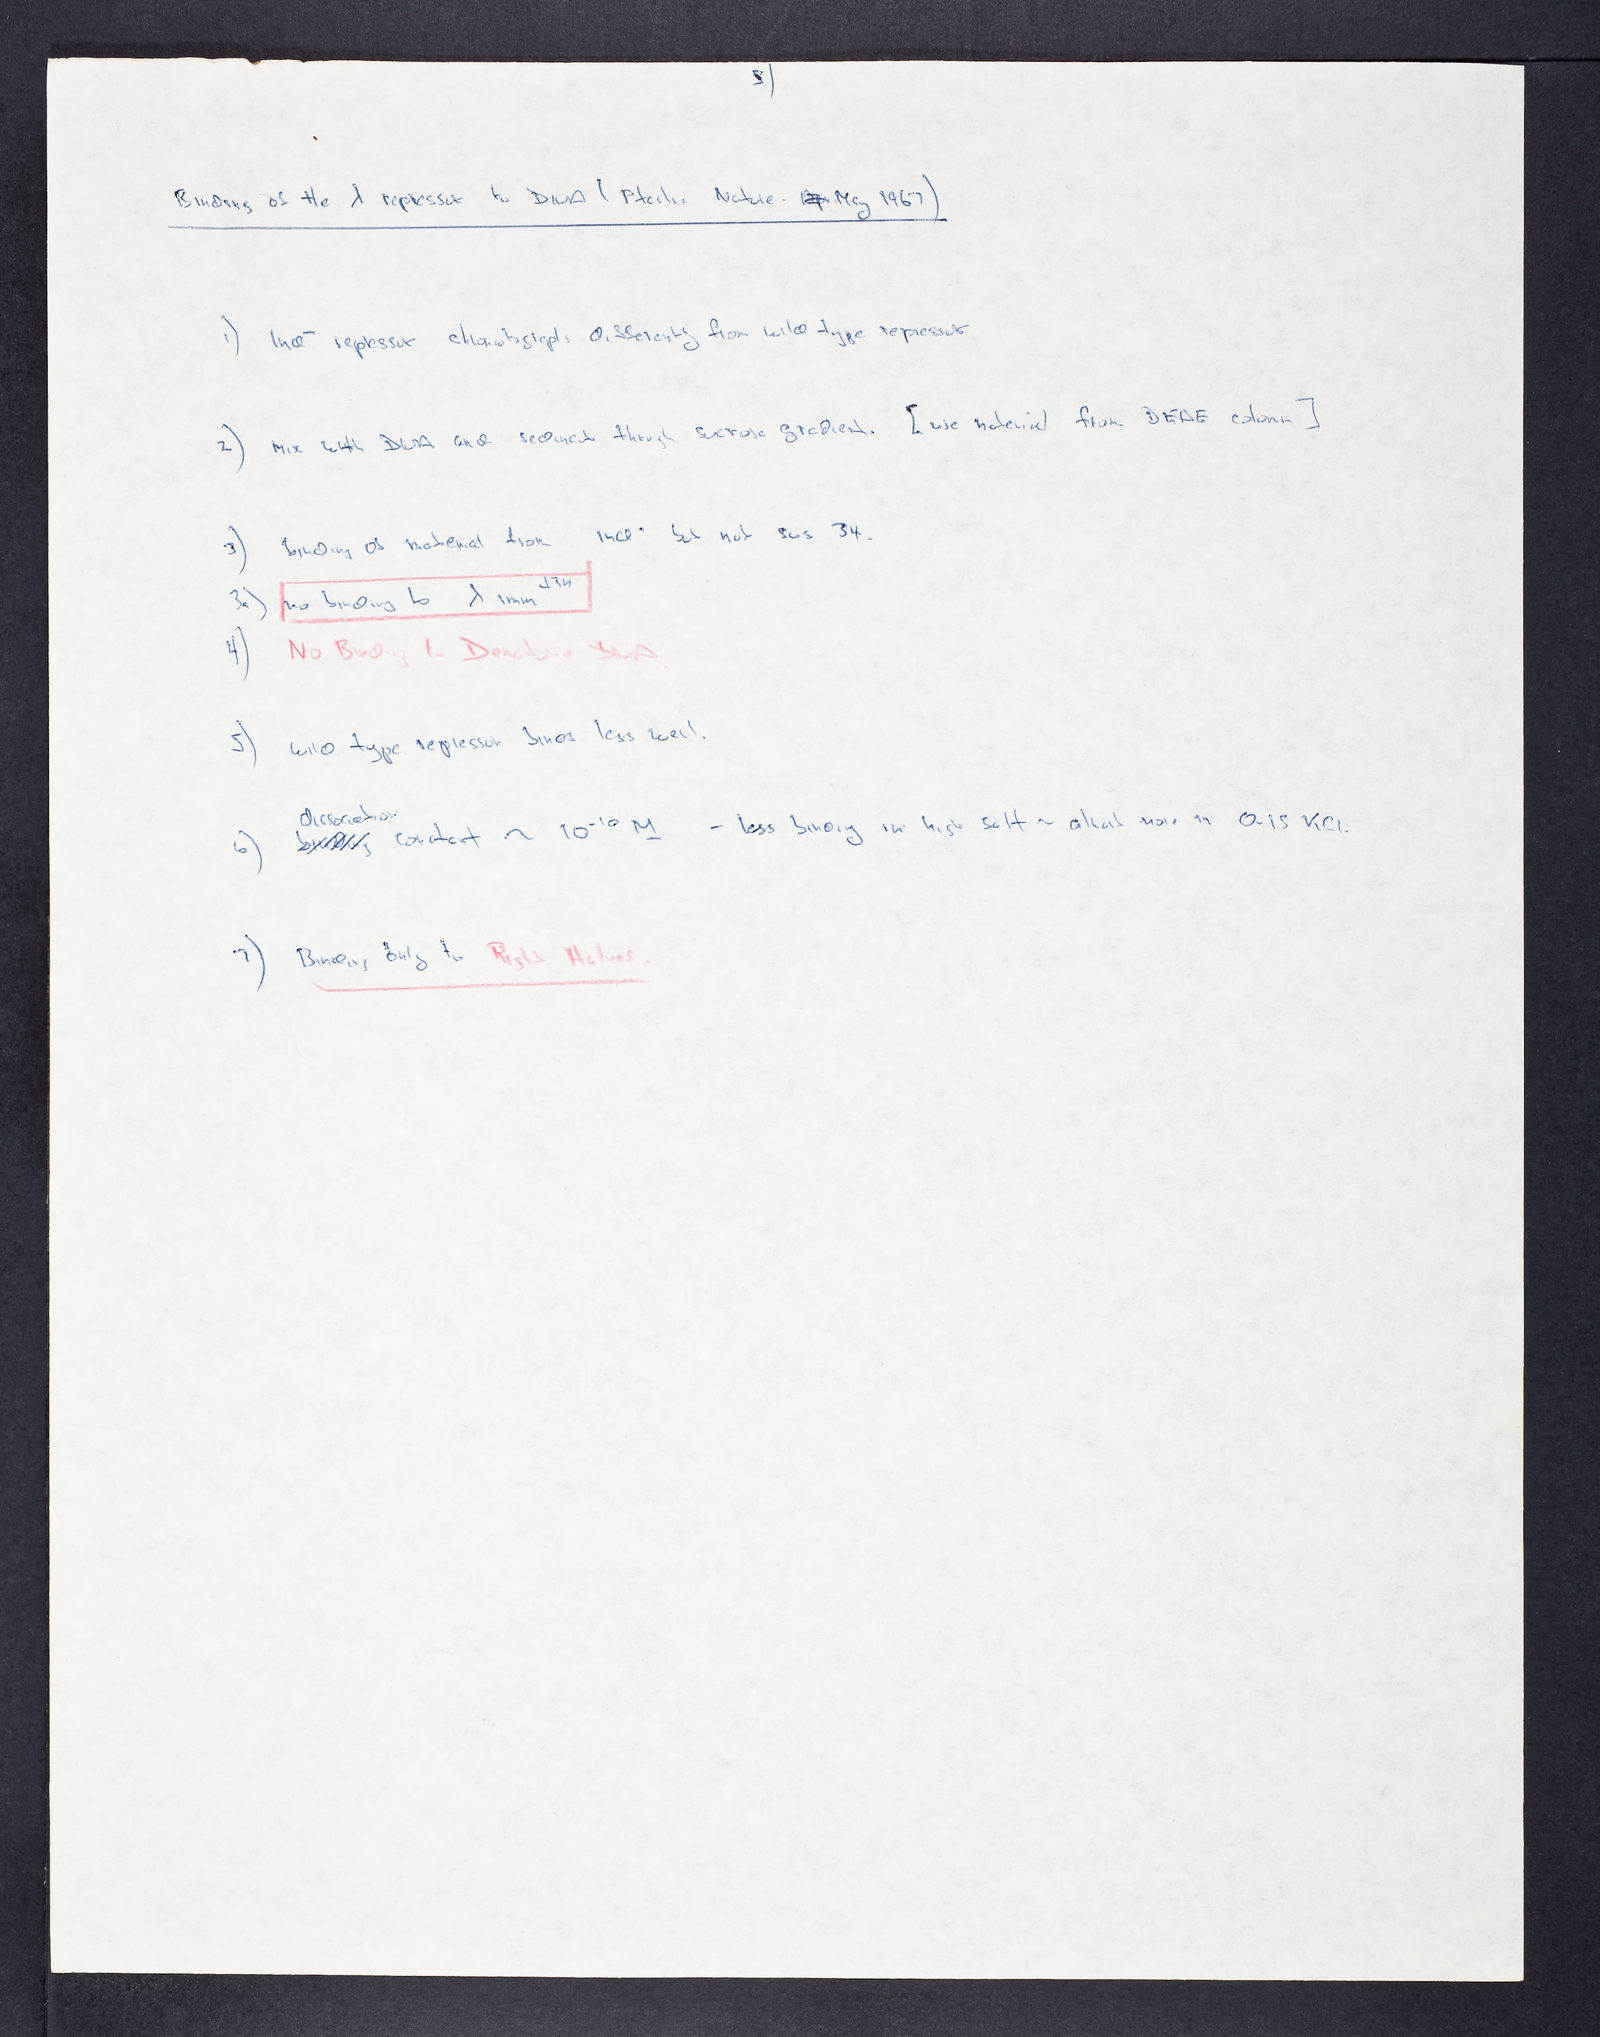 8)
Binding of the λ repressor to DNA (Ptashne Nature. May 1967)
1) Ind⁻ repressor differently from wild type repressor
2) Mix with DNA and sediment through sucrose gradient. [use material from DEAE column]
3) binding of material from ind⁻ but not sus 34.
3a) no binding to λ imm⁴³⁴
4) No Binding to Denatured DNA.
5) wild type repressor binds less well.
dissociation
6) constant ~ 10⁻¹⁰ M - less binding in high salt ~ almost none in 0.15 KCl.
7) Binding only to Right Halves.